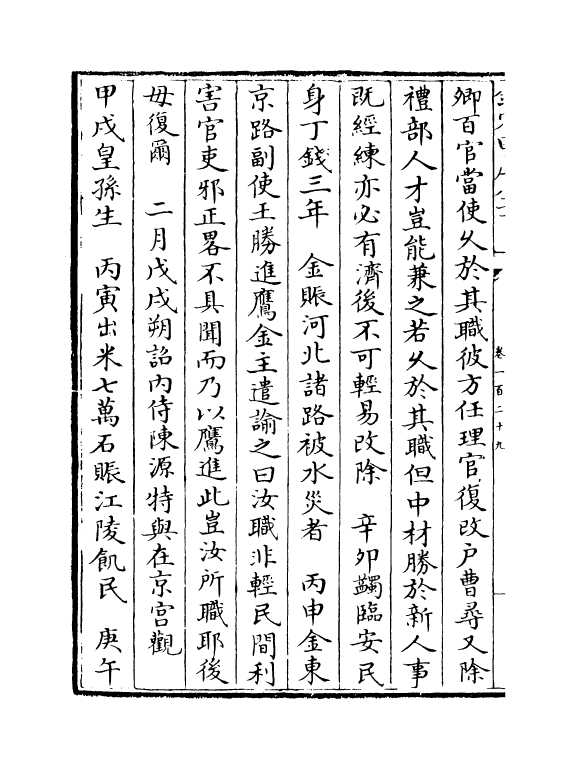 卷一百二十九
卿百官當使久於其職彼方任理官復改戶曹尋又除
禮部人才豈能兼之若久於其職但中材勝於新人事
既經練亦必有濟後不可輕易改除　辛卯蠲臨安民
身丁錢三年　金賑河北諸路被水災者　丙申金東
京路副使王勝進鷹金主遣諭之曰汝職非輕民間利
害官吏邪正畧不具聞而乃以鷹進此豈汝所職耶後
毋復爾　二月戊戌朔詔內侍陳源特與在京宮觀
甲戌皇孫生　丙寅出米七萬石賑江陵飢民　庚午